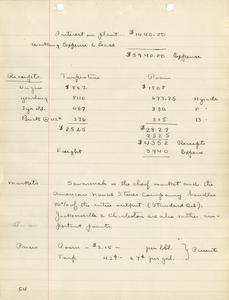 Interest on plant $1040.00
Working Expense & Care
$3940.00 Expense
Receipts Turpentine Rosin
Virgin $882 $1508
Yearling 840 673.75 N grade
3 yr old 467 336 F "
Back @ 42¢ 336 315 B "
$2525 $2827
2525
$4352 Receipts
Freight 3940 Expense
Markets Savannah is the chief market and the
American Naval Stores Company handles
90% of the entire output (Standard Oil).
Jacksonville & Charleston are also rather im-
portant points.
Prices Rosin - $2.15 - per bbl. Present
Turp 42¢ - 67¢ per gal.
54